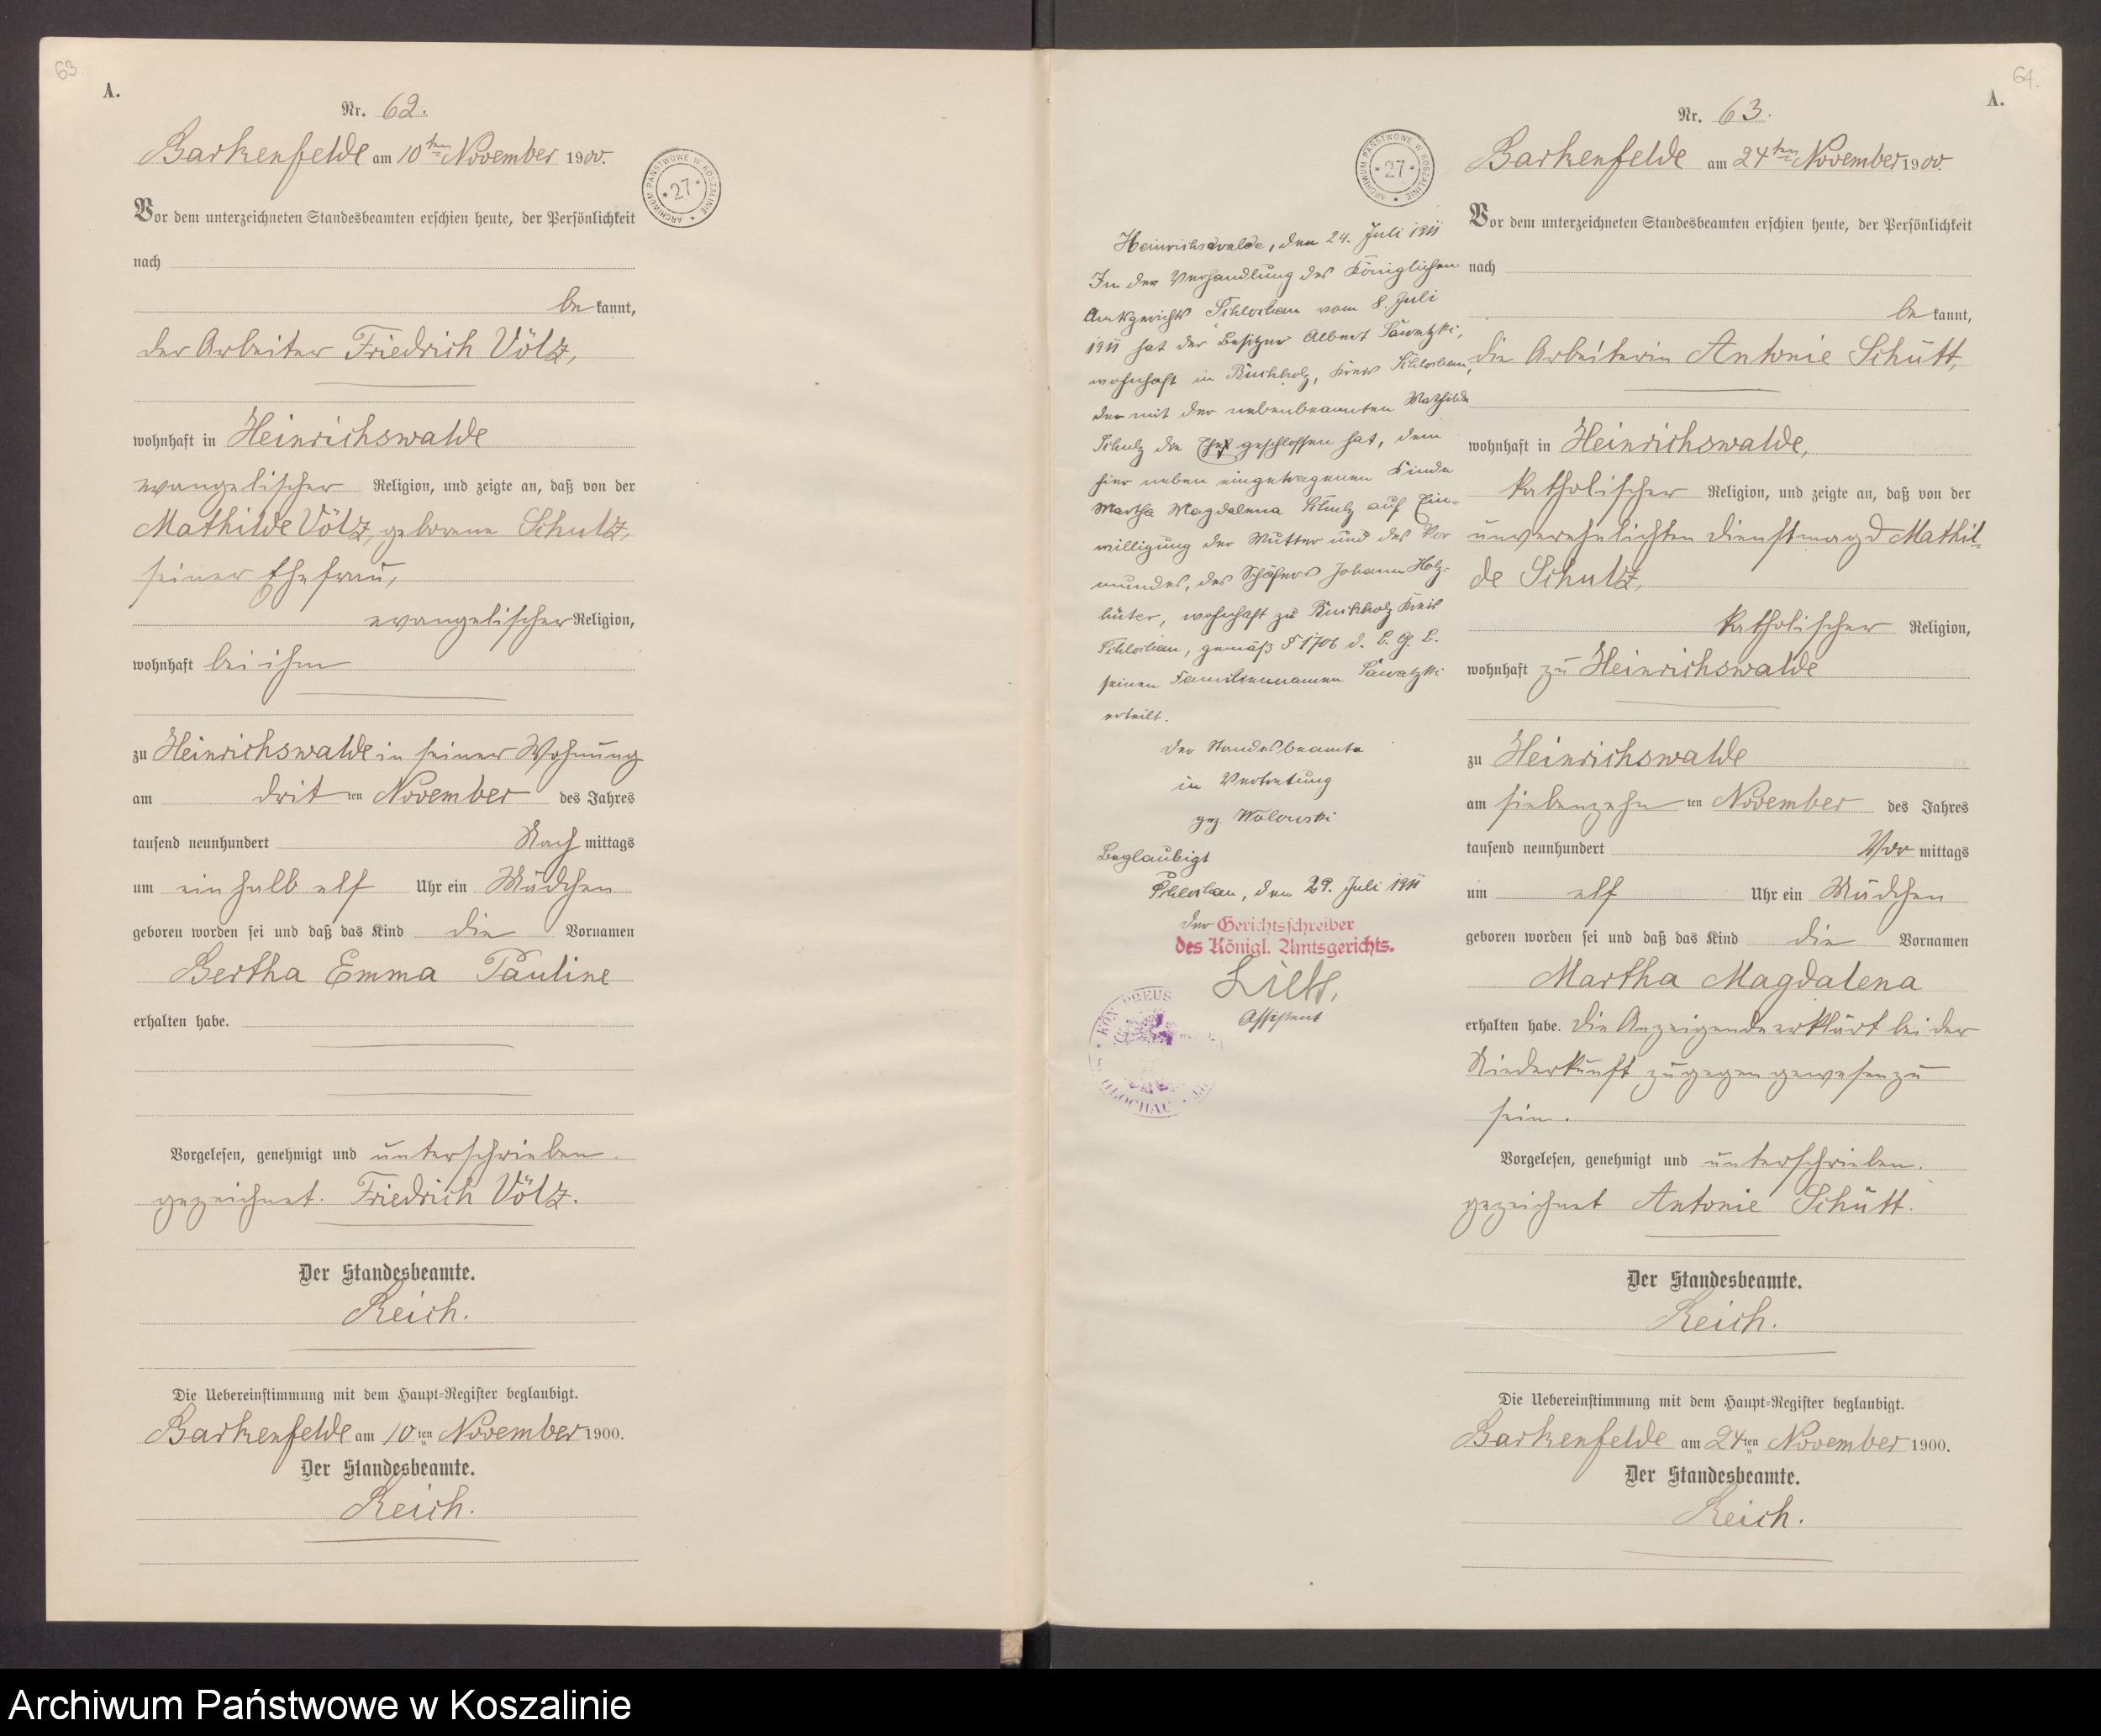 63.
A.
Nr. 62.
Barkenfelde am 10ten November 1900.
Vor dem unterzeichneten Standesbeamten erschien heute, der Persönlichkeit
nach
be kannt,
der Arbeiter Friedrich Völz,
wohnhaft in Heinrichswalde
evangelischer Religion, und zeigte an, daß von der
Mathilde Völz, geborene Schulz,
seiner Ehefrau,
evangelischer Religion,
wohnhaft bei ihm
zu Heinrichswalde in seiner Wohnung
am dritten November des Jahres
tausend neunhundert Nach mittags
um ein halb elf Uhr ein Mädchen
geboren worden sei und daß das Kind die Vornamen
Bertha Emma Pauline
erhalten habe.
Vorgelesen, genehmigt und unterschrieben.
gezeichnet. Friedrich Völz.
Der Standesbeamte.
Reich.
Die Uebereinstimmung mit dem Haupt-Register beglaubigt.
Barkenfelde am 10ten November 1900.
Der Standesbeamte.
Reich.
ARCHIWUM PAŃSTWOWE W KOSZALINIE
* 27 *
64.
A.
ARCHIWUM PAŃSTWOWE W KOSZALINIE
* 27 *
Heinrichswalde, den 24. Juli 1911
In der Verhandlung des Königlichen
Amtsgerichts Schlochau vom 8. Juli
1911 hat der Besitzer Albert Sawatzki,
wohnhaft in Buchholz, Kreis Schlochau,
der mit der nebenbenannten Mathilde
Schulz die Ehe geschlossen hat, dem
hier neben eingetragenen Kinde
Martha Magdalena Schulz auf Ein-
willigung der Mutter und des Vor
mundes, des Schäfers Johann Holz-
hüter, wohnhaft zu Buchholz Kreis
Schlochau, gemäß § 1706 d. B. G. B.
seinen Familiennamen Sawatzki
erteilt.
Der Standesbeamte
in Vertretung
gez Wolowski
Beglaubigt
Schlochau, den 29. Juli 1911
Der Gerichtsschreiber
des Königl. Amtsgerichts.
Assistent
Nr. 63.
Barkenfelde am 24ten November 1900.
Vor dem unterzeichneten Standesbeamten erschien heute, der Persönlichkeit
nach
be kannt,
die Arbeiterin Antonie Schütt,
wohnhaft in Heinrichswalde,
katholischer Religion, und zeigte an, daß von der
unverehelichten Dienstmagd Mathil-
de Schulz,
katholischer Religion,
wohnhaft zu Heinrichswalde
zu Heinrichswalde
am siebenzehnten November des Jahres
tausend neunhundert Vor mittags
um elf Uhr ein Mädchen
geboren worden sei und daß das Kind die Vornamen
Martha Magdalena
erhalten habe. Die Anzeigende erklärt bei der
Niederkunft zugegen gewesen zu
sein.
Vorgelesen, genehmigt und unterschrieben.
gezeichnet Antonie Schütt.
Der Standesbeamte.
Reich.
Die Uebereinstimmung mit dem Haupt-Register beglaubigt.
Barkenfelde am 24ten November 1900.
Der Standesbeamte.
Reich.
Archiwum Państwowe w Koszalinie